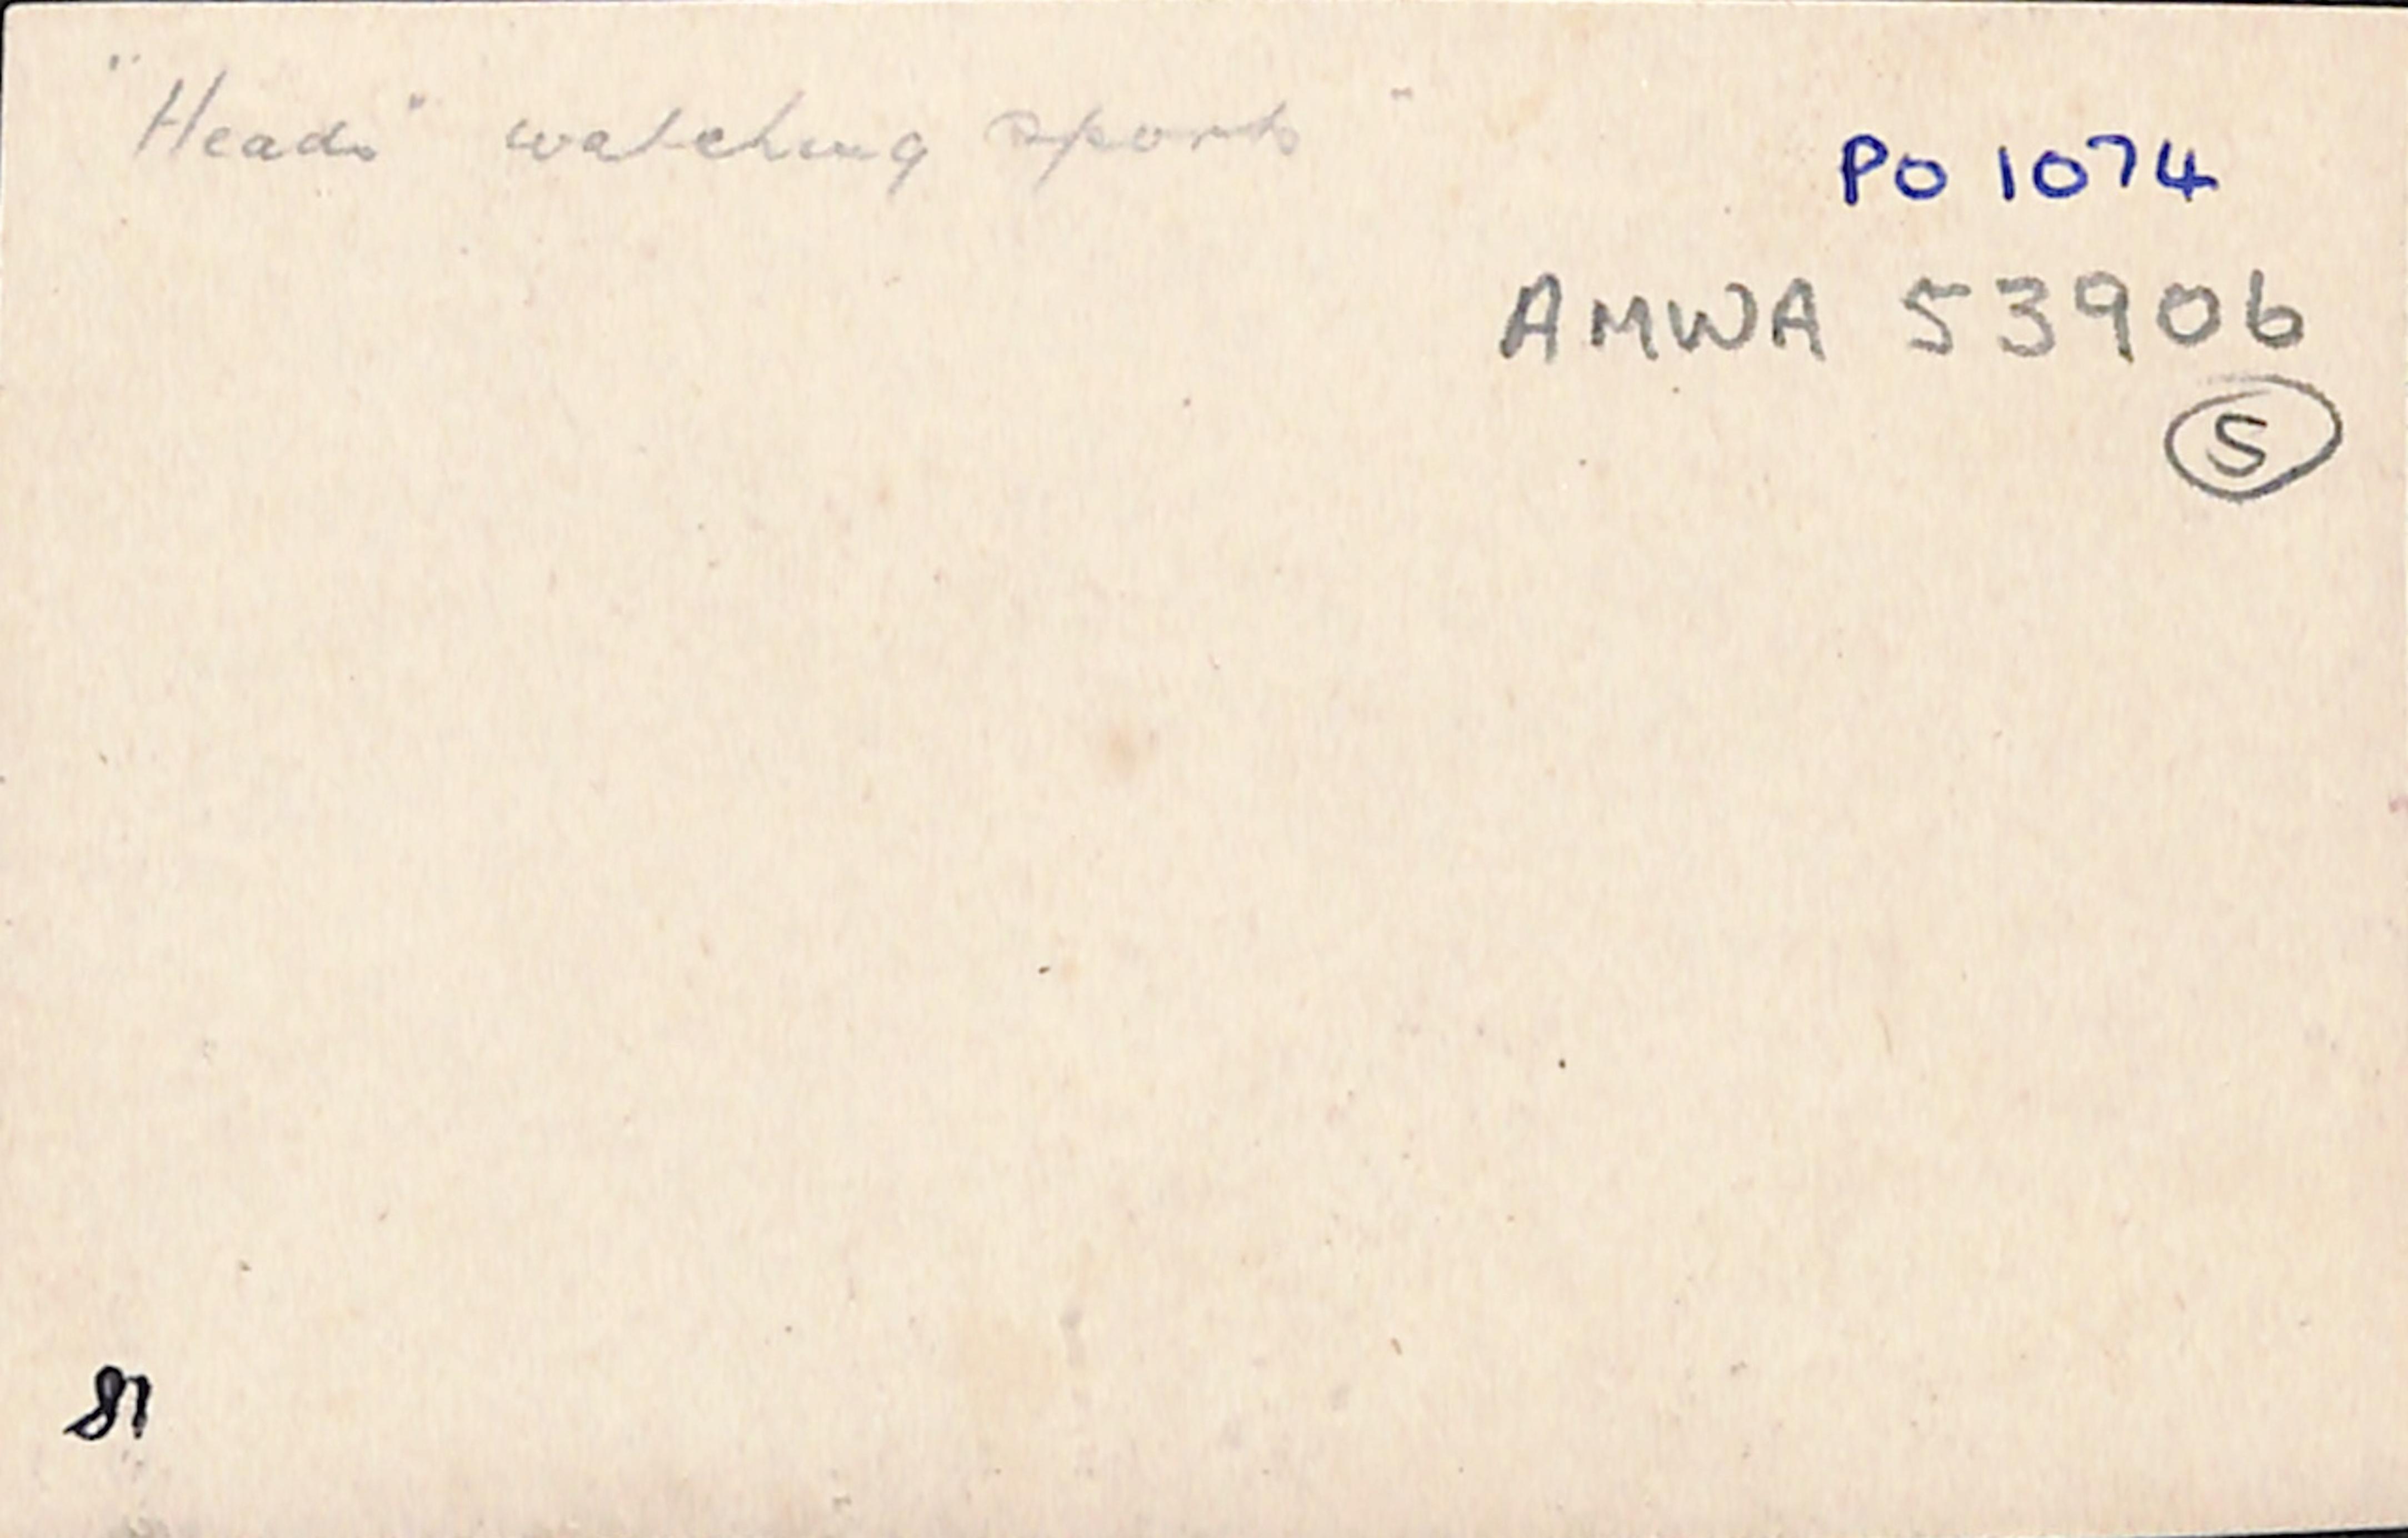 ""Heads" watching sports"
PO 1074
AMWA 53906
S
81